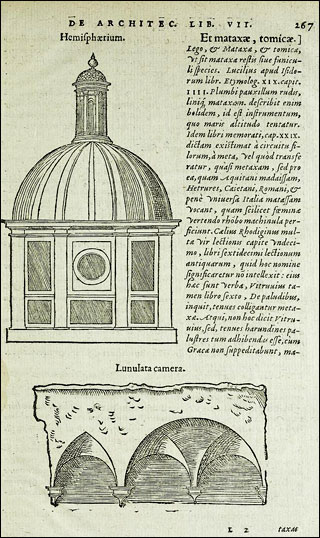 DE ARCHITEC. LIB. VII. 267
Hemisphærium.
Et mataxæ, tomicæ.]
Lego, & Mataxa, & tomica,
vt sit mataxa restis siue funicu-
li species. Lucilius apud Isido-
rum libr. Etymolog. XIX. capit.
IIII. Plumbi pauxillum rudis,
liniq́; mataxam. describit enim
bolidem, id est instrumentum,
quo maris altitudo tentatur.
Idem libri memorati, cap. XXIX.
dictam existimat à circuitu fi-
lorum, à meta, vel quòd transfe
ratur, quasi metaxam, sed pro
ea, quam Aquitani madaissam,
Hetrures, Caietani, Romani, &
penè vniuersa Italia matassam
vocant, quam scilicet fœminæ
verrendo rhobo machinula per-
ficiunt. Cælius Rhodiginus mul-
tæ vir lectionis capite vndeci-
mo, libri sextidecimi lectionum
antiquarum, quid hoc nomine
significaretur nō intellexit: eius
hæc sunt verba, Vitruuius ta-
men libro sexto, De paludibus,
inquit, tenues colligantur meta-
xæ. Atqui, non hoc dicit Vitru-
uius, sed, tenues harundines pa-
lustres tum adhibendas esse, cum
Græcæ non suppeditabunt, ma-
Lunulata camera.
L 2 taxas